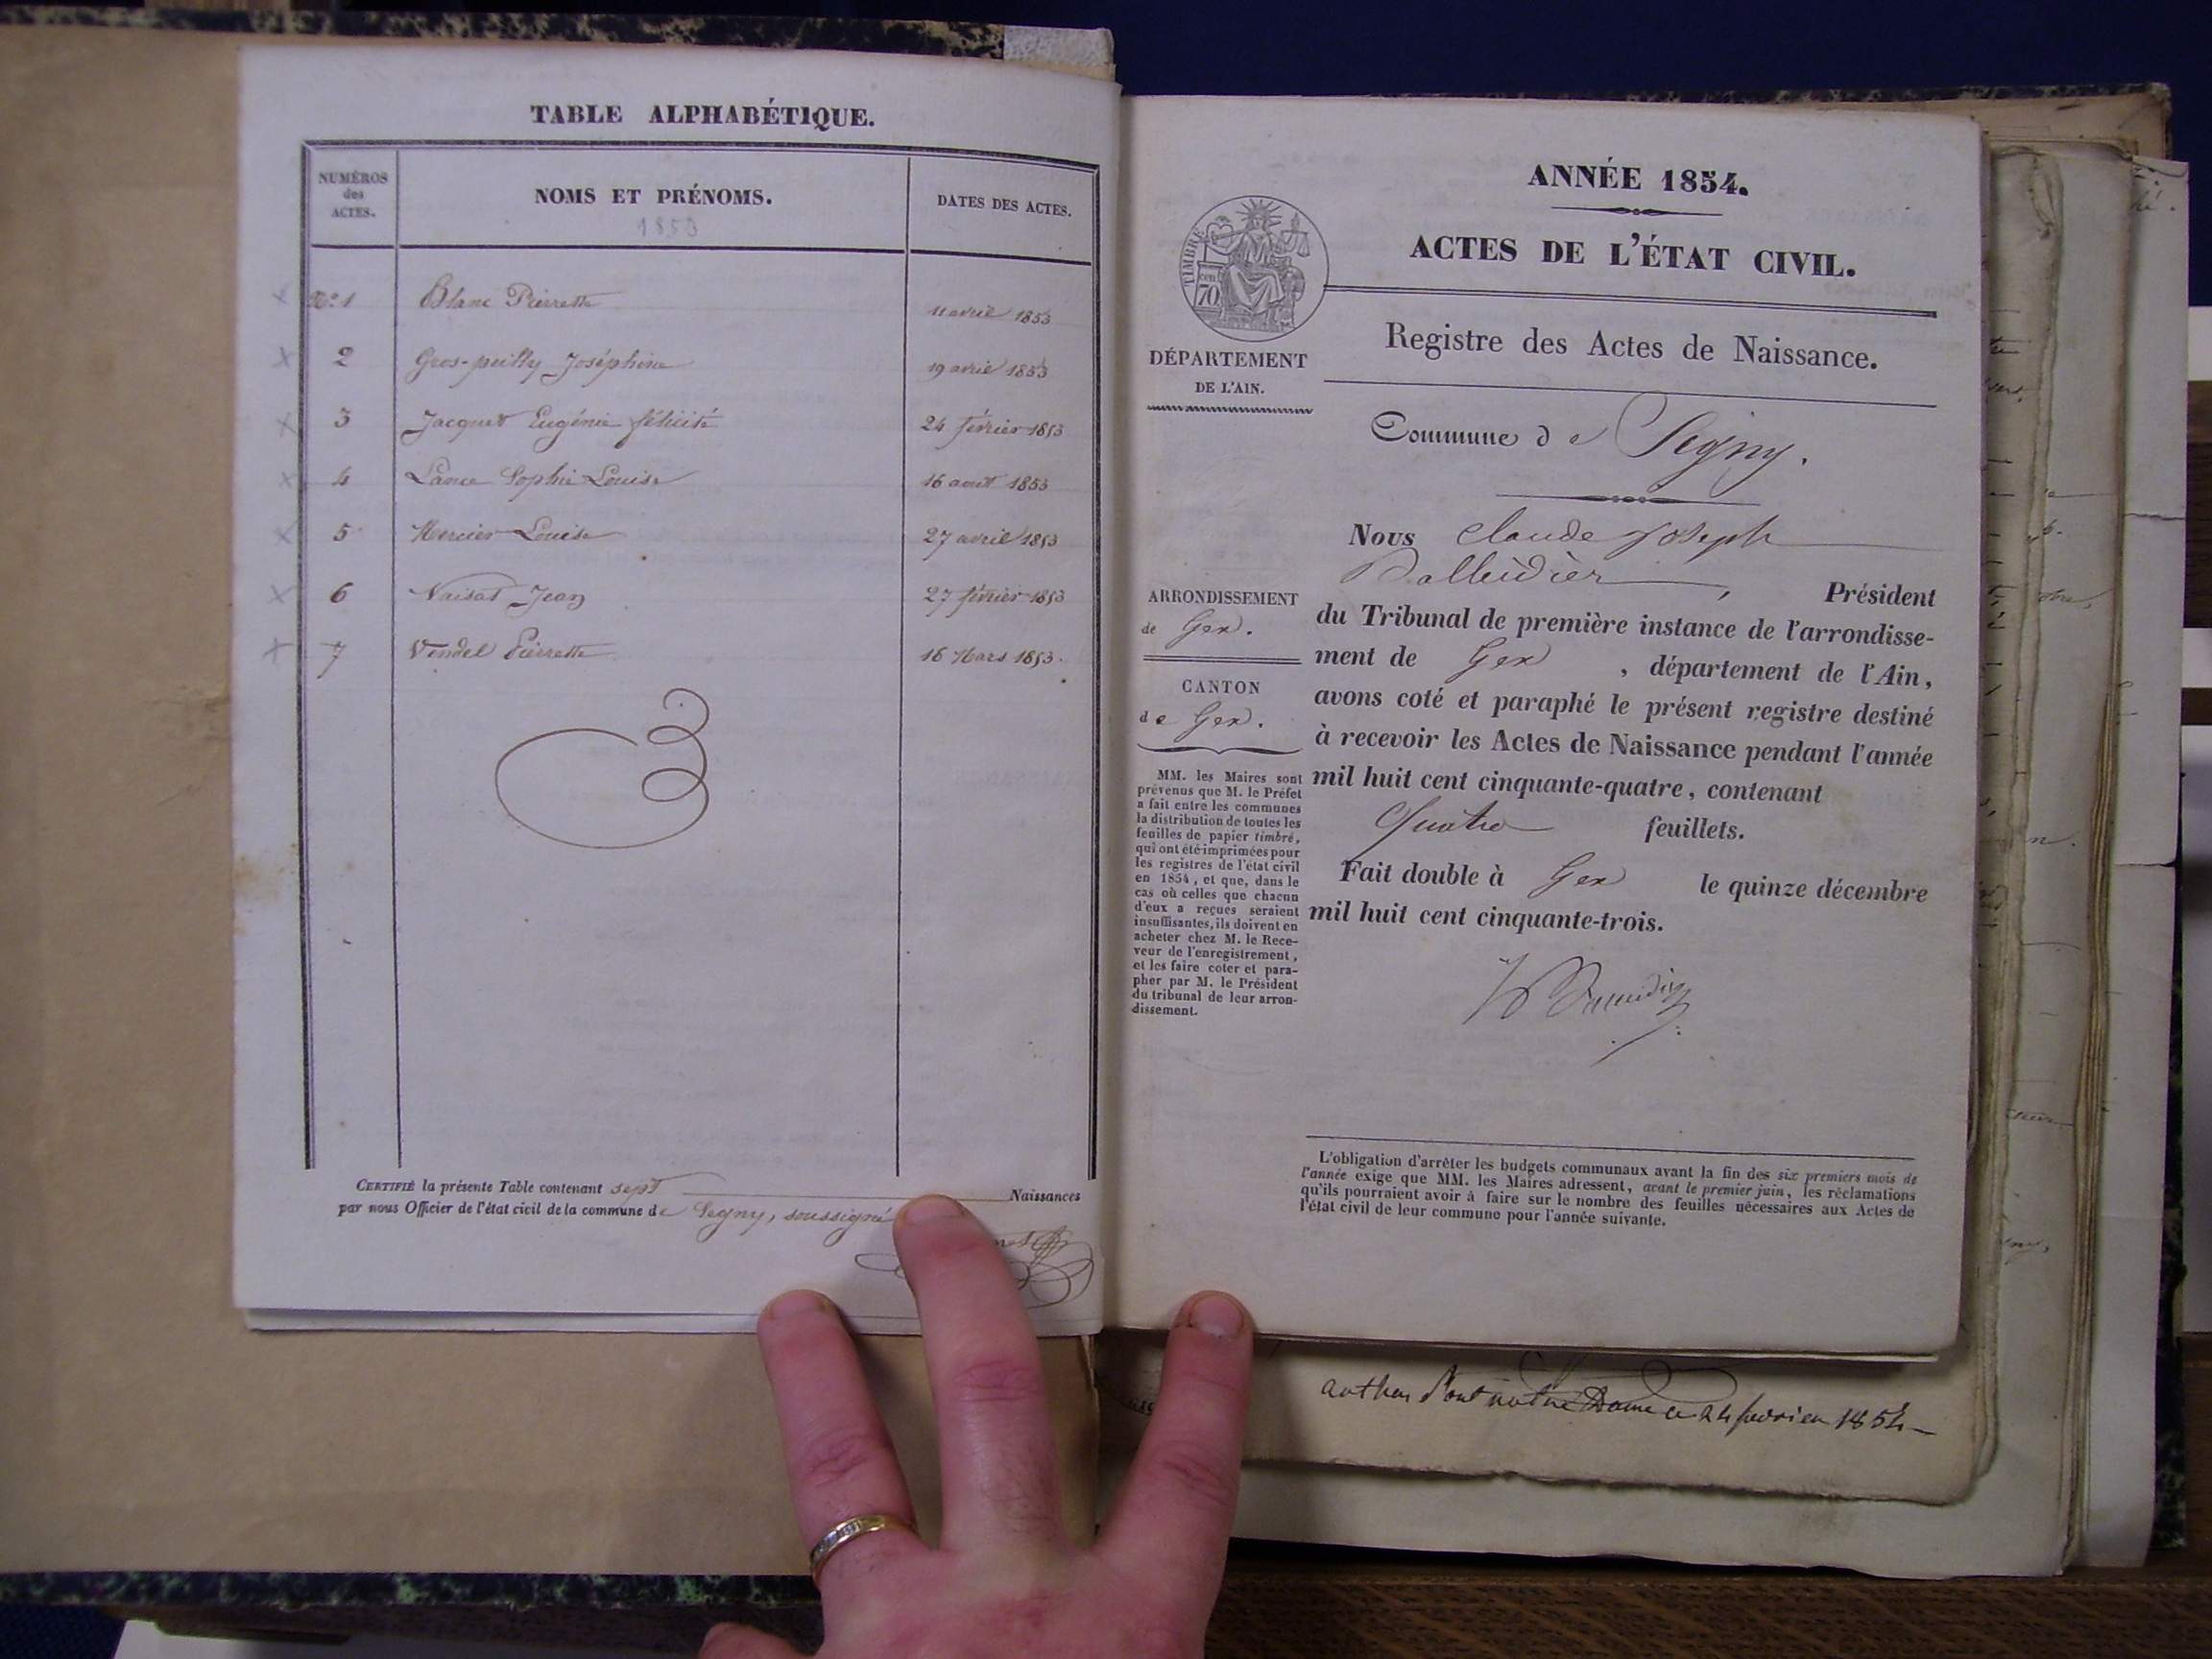 TABLE ALPHABÉTIQUE.
NUMÉROS
des
ACTES.
NOMS ET PRÉNOMS.
1853
DATES DES ACTES.
N° 1 Blanc Pierrette 11 avril 1853
2 Gros-peilly Joséphine 19 avril 1853
3 Jacquet Eugénie félicité 24 février 1853
4 Lance Sophie Louise 16 août 1853
5 Mercier Louise 27 avril 1853
6 Jean 27 février 1853
7 Vendel Pierrette 16 Mars 1853.
CERTIFIÉ la présente Table contenant sept Naissances
par nous Officier de l'état civil de la commune de Segny, soussigné
ANNÉE 1854.
ACTES DE L'ÉTAT CIVIL.
TIMBRE
70
Registre des Actes de Naissance.
DÉPARTEMENT
DE L'AIN.
Commune de Segny.
Nous Claude Joseph
, Président
ARRONDISSEMENT
de Gex.
du Tribunal de première instance de l'arrondisse-
ment de Gex , département de l'Ain,
CANTON
de Gex.
avons coté et paraphé le présent registre destiné
à recevoir les Actes de Naissance pendant l'année
mil huit cent cinquante-quatre, contenant
Quatre feuillets.
Fait double à Gex le quinze décembre
mil huit cent cinquante-trois.
MM. les Maires sont
prévenus que M. le Préfet
a fait entre les communes
la distribution de toutes les
feuilles de papier timbré,
qui ont été imprimées pour
les registres de l'état civil
en 1854, et que, dans le
cas où celles que chacun
d'eux a reçues seraient
insuffisantes, ils doivent en
acheter chez M. le Rece-
veur de l'enregistrement,
et les faire coter et para-
pher par M. le Président
du tribunal de leur arron-
dissement.
L'obligation d'arrêter les budgets communaux avant la fin des six premiers mois de
l'année exige que MM. les Maires adressent, avant le premier juin, les réclamations
qu'ils pourraient avoir à faire sur le nombre des feuilles nécessaires aux Actes de
l'état civil de leur commune pour l'année suivante.
notre Dame ce 24 fevrier 1854